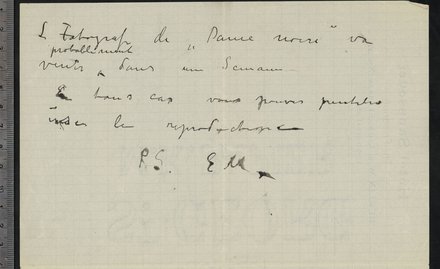 L Fotograf de „Dame noire" va
probablement
venir dans un Semain
En tous cas vous pouves peutetre
la reproduction
P.S. E M.